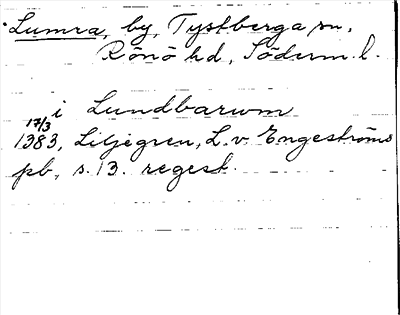 Lumra, by, Tystberga sn,
Rönö hd, Söderm. l.
i Lundbarum
17/3
1383, Liljegren, L. v. Engeströms
pb, s. 13. regest.